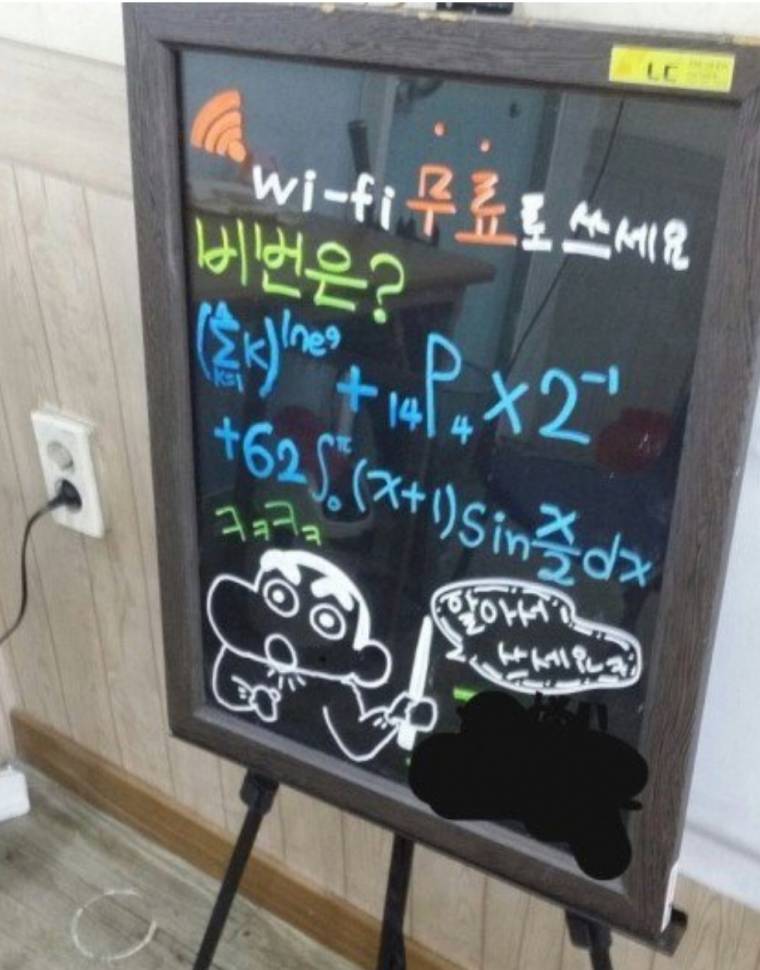 LC
wi-fi 무료로 쓰세요
비번은?
(∑k)^ln e⁹ + ₁₄P₄ × 2⁻¹
k=1
+62∫₀^π (x+1)sin x/2 dx
ㅋㅋㅋㅋ
알아서
쓰세요